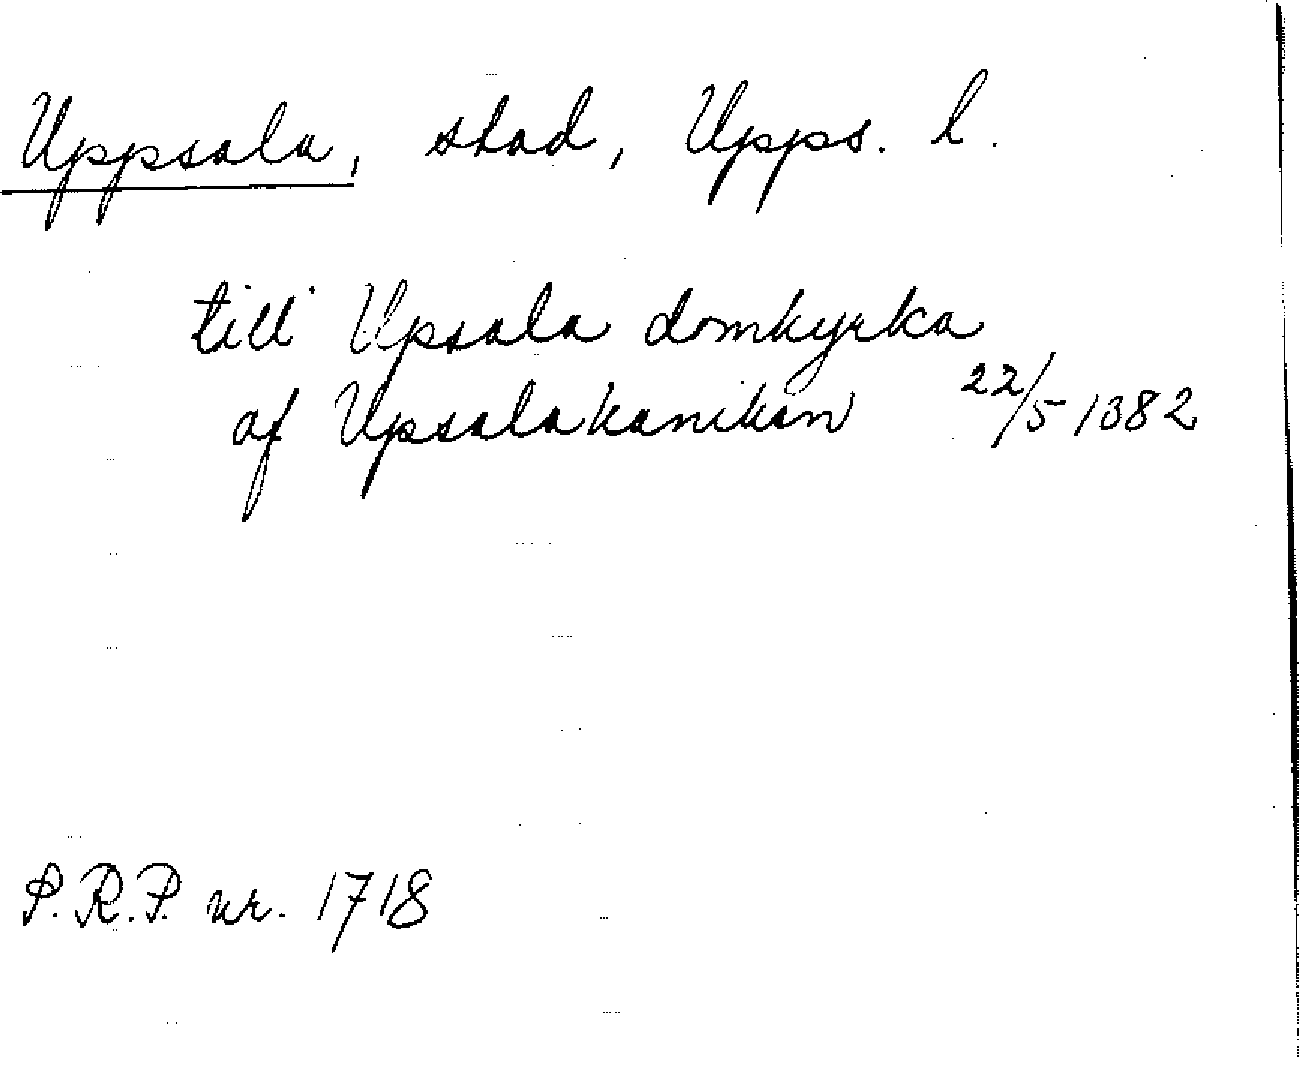 Uppsala, stad, Upps. l.
till Upsala domkyrka
af Upsalakaniken 22/5 1382
P.R.P. nr. 1718